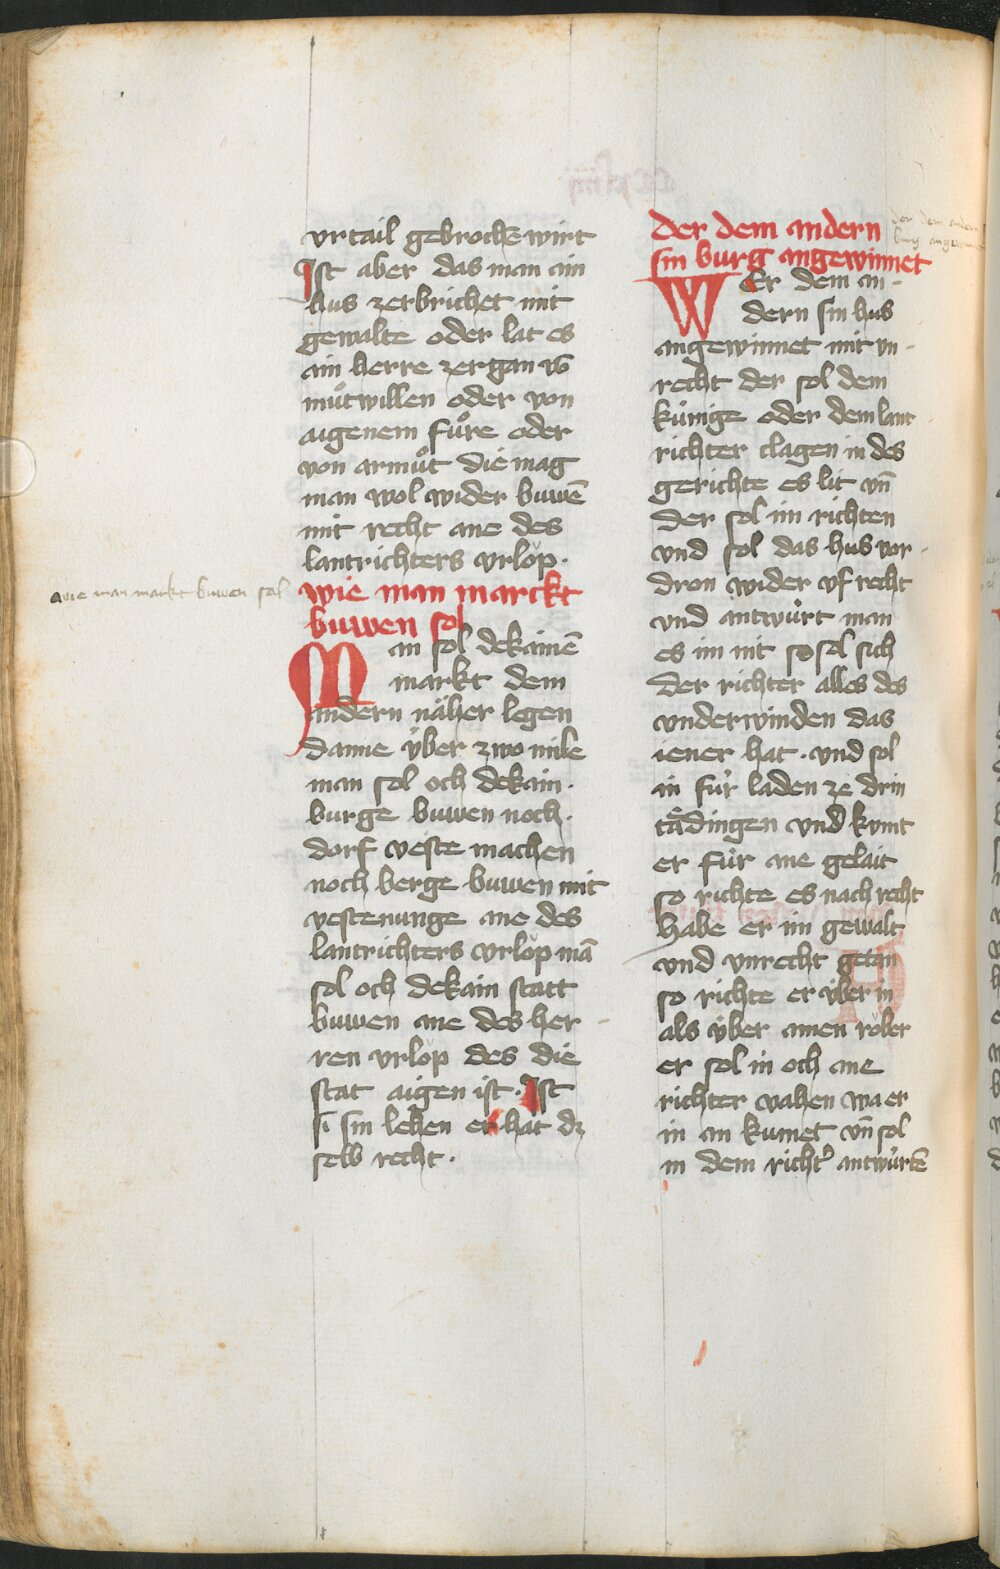 vrtail gebrochē wirt
Ist aber das man ain
hus zerbrichet mit
gewalte oder lat es
ain herre zergan vō
můtwillen oder von
aigenem fůre oder
von armůt die mag
man wol wider buwē
mit recht ane des
lantrichters vrlop ·
wie man marckt
buwen sol
wie man markt buwen sol
Man sol dekainē
markt dem
andern näher legen
danne über zwo mile
man sol och dekain ·
burge buwen noch ·
dorf veste machen
noch berge buwen mit
vestenunge ane des
lantrichters vrlop mā
sol och dekain statt
buwen ane des her -
ren vrlop des die
stat aigen ist · Ist
si sin lehen er hat dz
selb recht ·
der dem andern
sin burg angewinnet
der dem andern
burg angewinnet
WEr dem an -
dern sin hus
angewinnet mit vn -
recht der sol dem
künige oder dem lant
richter clagen in des
gerichte es lit vn̄
der sol im richten
vnd sol das hus vor -
dron wider vf recht
vnd antwürt man
es im nit so sol sich
der richter alles des
vnderwinden das
iener hat · vnd sol
in für laden ze drin
tädingen vnd kumt
er für ane gelait
so richte es nach recht
habe er im gewalt
vnd vnrecht getan
so richte er über in
als über ainen röber
er sol in och ane
richter vahen wa er
in an kumet vn̄ sol
in dem richt' antwürtē